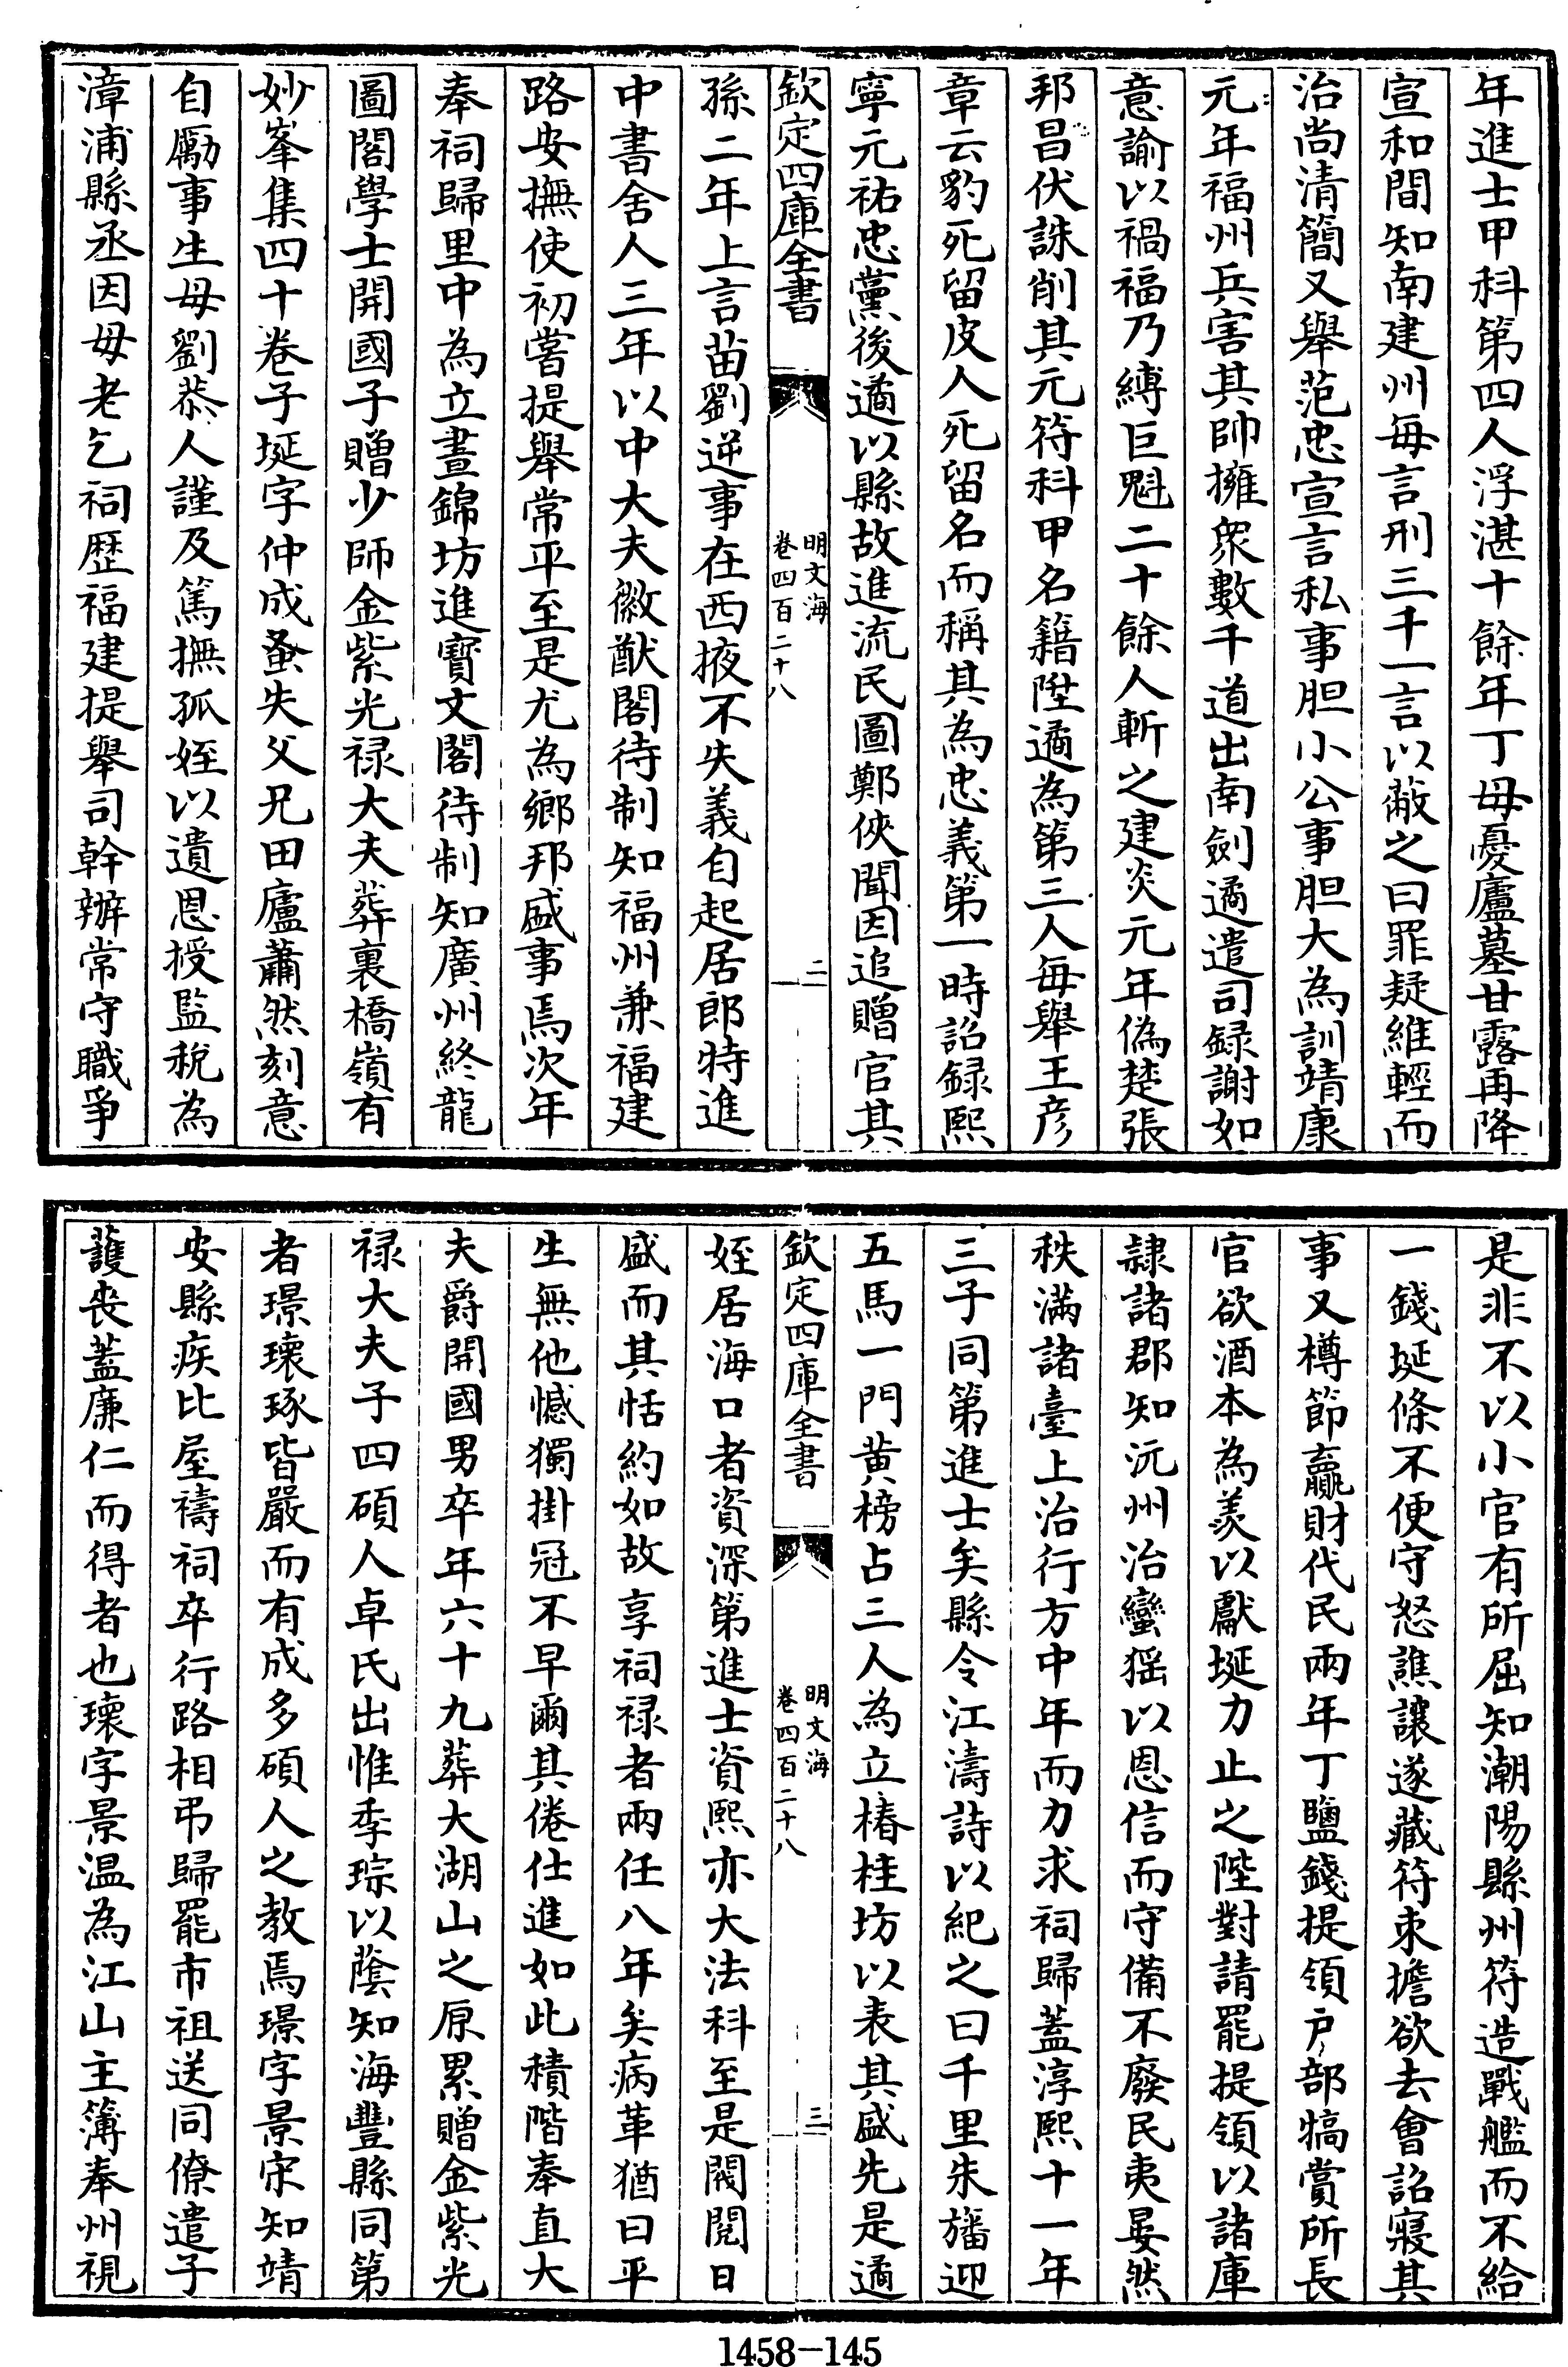 年進士甲科第四人浮湛十餘年丁母憂廬墓甘露再降
宣和間知南建州每言刑三千一言以蔽之曰罪疑維輕而
治尚清簡又舉范忠宣言私事胆小公事胆大為訓靖康
元年福州兵害其帥擁衆數千道出南劍遹遣司録謝如
意諭以禍福乃縛巨魁二十餘人斬之建炎元年偽楚張
邦昌伏誅削其元符科甲名籍陞遹為第三人每舉王彦
章云豹死留皮人死留名而稱其為忠義第一時詔録熙
寧元祐忠黨後遹以縣故進流民圖鄭俠聞因追贈官其
欽定四庫全書
明文海
卷四百二十八
二
孫二年上言苗劉逆事在西掖不失義自起居郎特進
中書舍人三年以中大夫徽猷閣待制知福州兼福建
路安撫使初嘗提舉常平至是尤為鄉邦盛事焉次年
奉祠歸里中為立晝錦坊進寳文閣待制知廣州終龍
圖閣學士開國子贈少師金紫光禄大夫葬裏橋嶺有
妙峯集四十卷子埏字仲成蚤失父兄田廬蕭然刻意
自勵事生母劉恭人謹及篤撫孤姪以遺恩授監税為
漳浦縣丞因母老乞祠歴福建提舉司幹辦常守職爭
是非不以小官有所屈知潮陽縣州符造戰艦而不給
一錢埏條不便守怒譙讓遂藏符束擔欲去會詔寢其
事又樽節贏財代民兩年丁鹽錢提領户部犒賞所長
官欲酒本為羨以獻埏力止之陛對請罷提領以諸庫
隷諸郡知沅州治蠻猺以恩信而守備不廢民夷晏然
秩滿諸臺上治行方中年而力求祠歸蓋淳熙十一年
三子同第進士矣縣令江濤詩以紀之曰千里朱旛迎
五馬一門黄榜占三人為立椿桂坊以表其盛先是遹
欽定四庫全書
明文海
卷四百二十八
三
姪居海口者資深第進士資熙亦大法科至是閥閲日
盛而其恬約如故享祠禄者兩任八年矣病革猶曰平
生無他憾獨掛冠不早爾其倦仕進如此積階奉直大
夫爵開國男卒年六十九葬大湖山之原累贈金紫光
禄大夫子四碩人卓氏出惟季琮以蔭知海豐縣同第
者璟瓌琢皆嚴而有成多碩人之教焉璟字景宋知靖
安縣疾比屋禱祠卒行路相弔歸罷市祖送同僚遣子
護丧蓋廉仁而得者也瓌字景温為江山主簿奉州視
1458-145